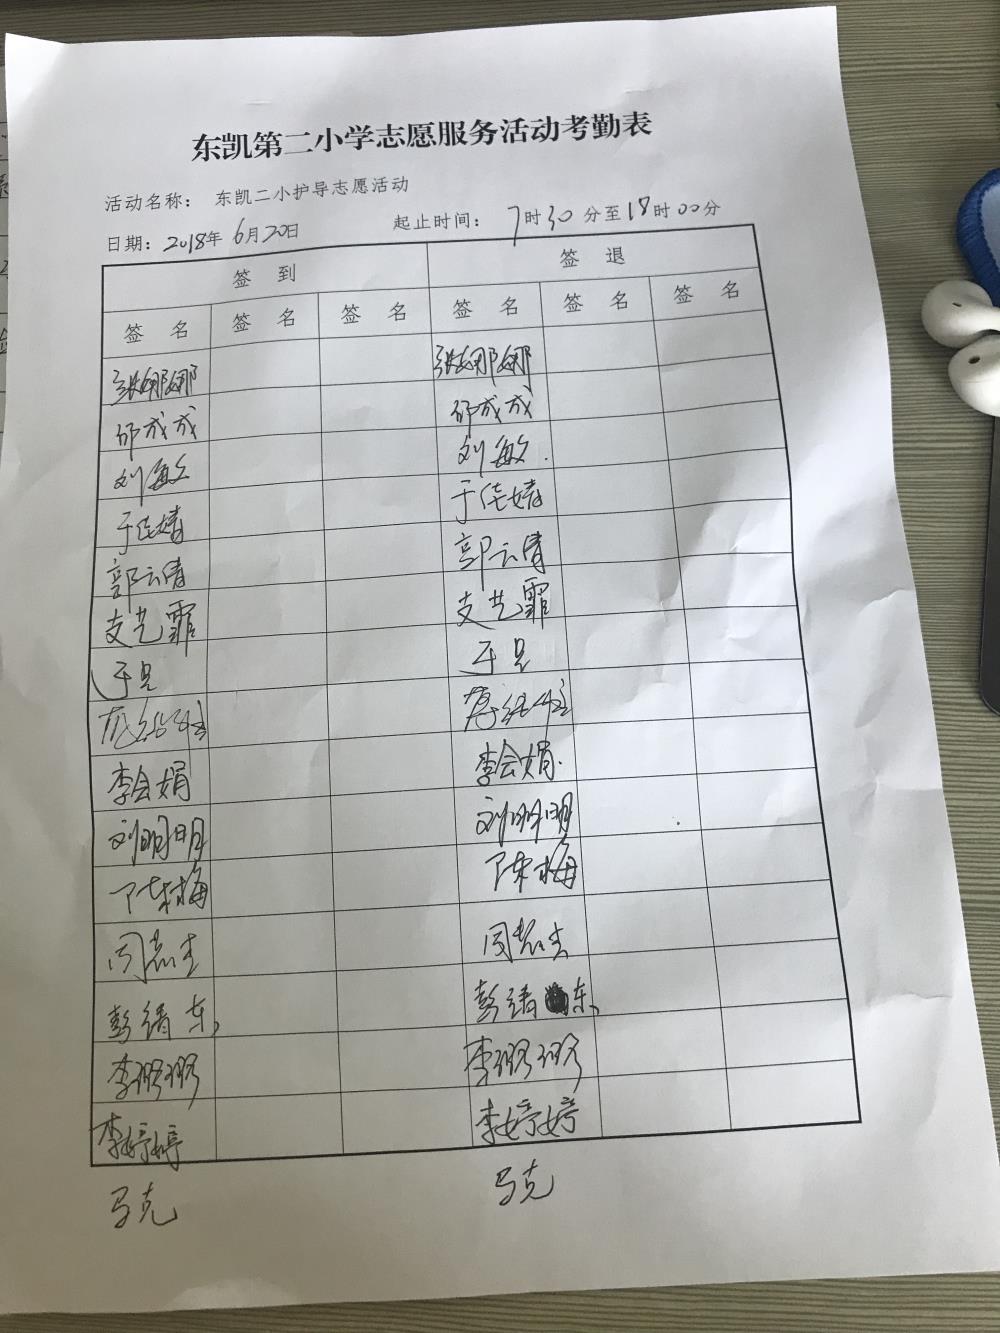 东凯第二小学志愿服务活动考勤表
活动名称： 东凯二小护导志愿活动
日期：2018年6月20日 起止时间： 7时30分至18时00分
签 到 签 退
签 名 签 名 签 名 签 名 签 名 签 名
张娜娜 张娜娜
邵成成 邵成成
刘敏 刘敏
于佳婧 于佳婧
郭云倩 郭云倩
支艺霏 支艺霏
于是 于是
李会娟 李会娟
刘明明 刘明明
陈梅 陈梅
闫志杰 闫志杰
彭绪东 彭绪东
李璐璐 李璐璐
李婷婷 李婷婷
马克 马克